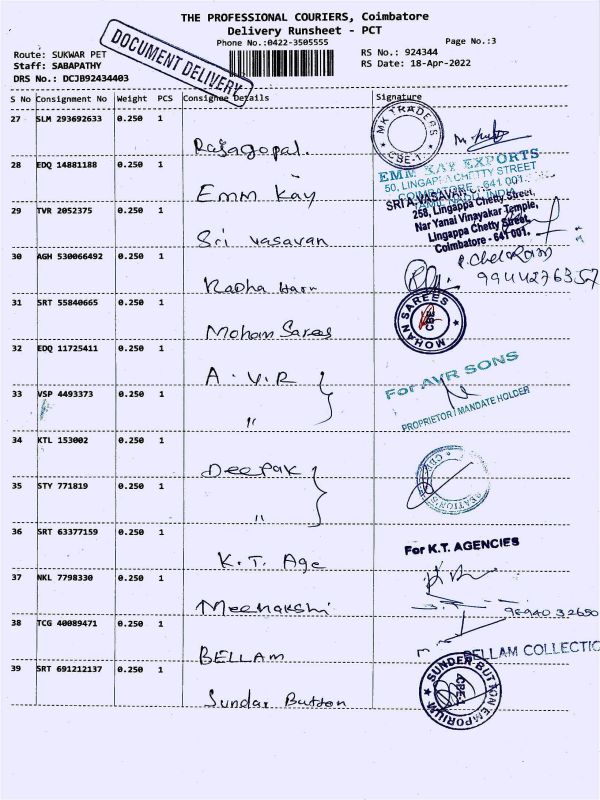 THE PROFESSIONAL COURIERS, Coimbatore
Delivery Runsheet - PCT
Phone No.:0422-3505555
Page No.:3
DOCUMENT DELIVERY
Route: SUKWAR PET
RS No.: 924344
Staff: SABAPATHY
RS Date: 18-Apr-2022
DRS No.: DCJB92434403
S No Consignment No Weight PCS Consignee Details Signature
27 SLM 293692633 0.250 1
Rajagopal.
MK TRADERS
CBE-1
28 EDQ 14881188 0.250 1
Emm Kay
EMM KAY EXPORTS
50, LINGAPPA CHETTY STREET
COIMBATORE - 641 001.
29 TVR 2052375 0.250 1
Sri vasavan
SRI VASAVAN
258, Lingappa Chetty Street,
Nar Yanai Vinayakar Temple,
Lingappa Chetty Street,
Coimbatore - 641 001.
30 AGH 530066492 0.250 1
Radha Hari
31 SRT 55840665 0.250 1
Mohan Sarees
MOHAN SAREES
CBE
32 EDQ 11725411 0.250 1
A.V.R
For AVR SONS
PROPRIETOR / MANDATE HOLDER
33 VSP 4493373 0.250 1
"
34 KTL 153002 0.250 1
Deepak
35 STY 771819 0.250 1
"
36 SRT 63377159 0.250 1
K.T. Age
For K.T. AGENCIES
37 NKL 7798330 0.250 1
Meenakshi
38 TCG 40089471 0.250 1
BELLAM
BELLAM COLLECTIO
39 SRT 691212137 0.250 1
Sundar Button
SUNDER BUTTON EMPORIUM